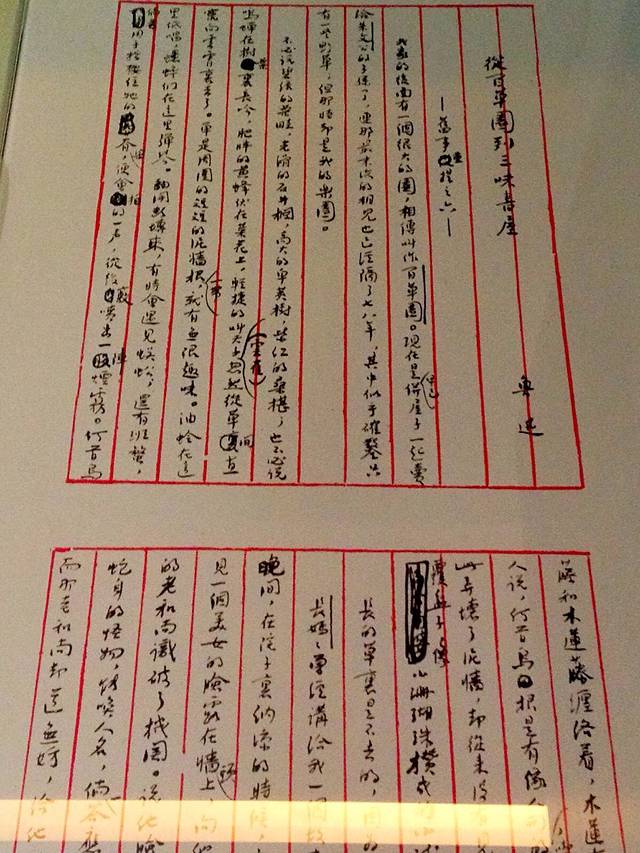 從百草園到三味書屋
——舊事重提之六——
魯迅
我家的後面有一個很大的園，相傳叫作百草園。現在是早已併屋子一起賣
給朱文公的子孫了，連那最末次的相見也已經隔了七八年，其中似乎確鑿只
有一些野草；但那時卻是我的樂園。
不必說碧綠的菜畦，光滑的石井欄，高大的皂莢樹，紫紅的桑椹；也不必說
鳴蟬在樹葉裏長吟，肥胖的黃蜂伏在菜花上，輕捷的叫天子（雲雀）忽然從草間直
竄向雲霄裏去了。單是周圍的短短的泥牆根一帶，就有無限趣味。油蛉在這
里低唱，蟋蟀們在這里彈琴。翻開斷磚來，有時會遇見蜈蚣；還有斑蝥，
倘若用手指按住牠的脊梁，便會拍的一聲，從後竅噴出一陣煙霧。何首烏
藤和木蓮藤纏絡着，木蓮
人說，何首烏根是有像
此弄壞了泥牆，卻從來沒有
覆盆子，像小珊瑚珠攢成的小
長的草裏是不去的，因為
長媽媽曾經講給我一個故
晚間，在院子裏納涼的時候，
見一個美女的臉露在牆上，向他
的老和尚識破了機關。說他臉
蛇身的怪物，能喚人名，倘答應
而那老和尚卻道無妨，給他